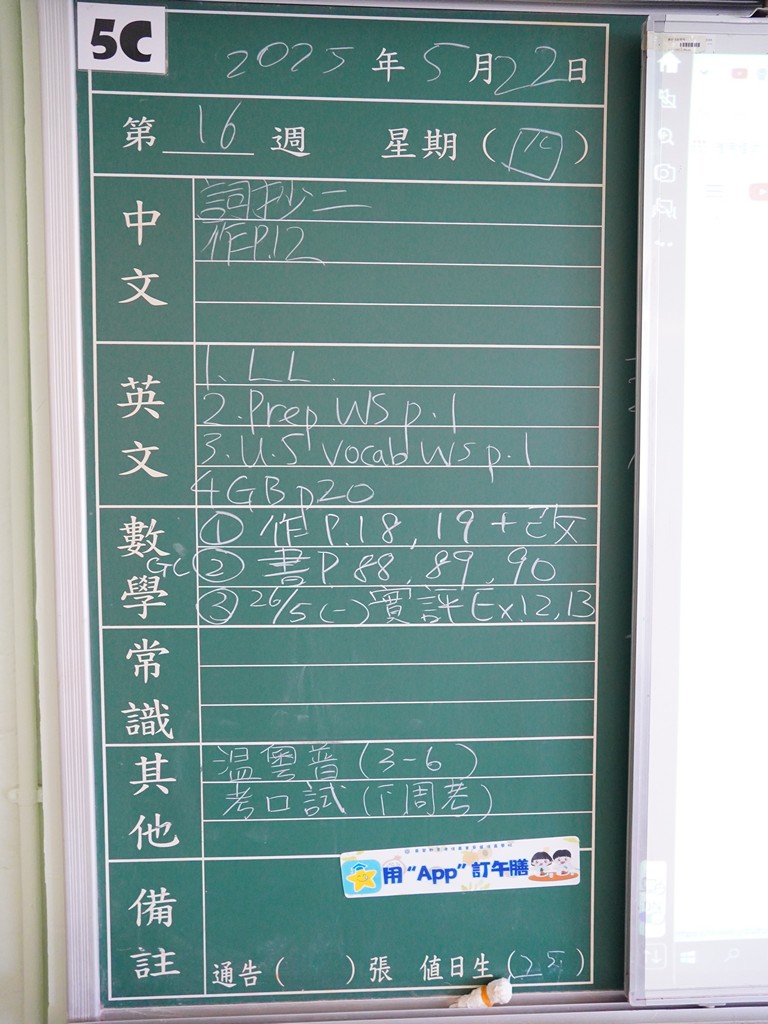 5C
2025年5月22日
第 16 週 星期(四)
中文
詞抄二
作P.12
英文
1. LL.
2. Prep WS p.1
3. U.5 vocab WS p.1
4 GB p20
數學
① 作 P.18, 19 + 改
GC ② 書 P 88, 89, 90
③ 26/5 (一) 實評 Ex.12, 13
常識
其他
温粵普(3-6)
考口試(下周考)
備註
用“App”訂午膳
通告( )張 值日生(25)